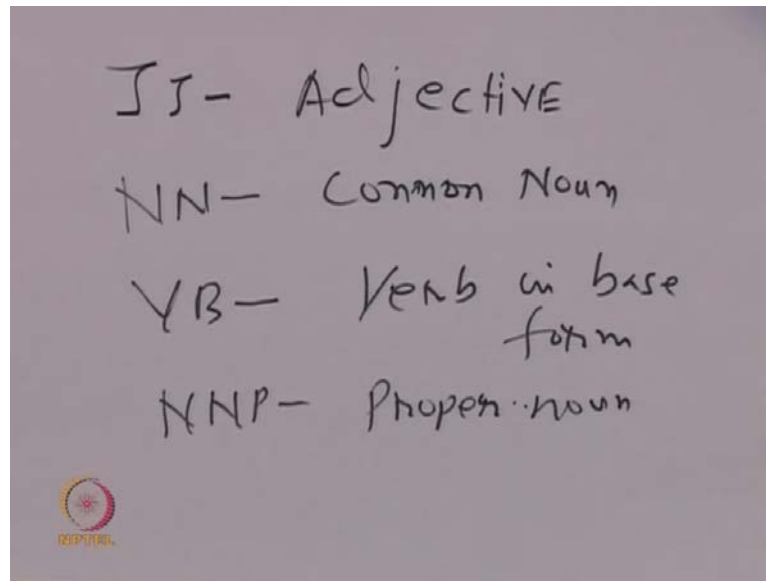 JJ- Adjective
NN- Common Noun
VB- Verb in base
form
NNP- Proper noun
NPTEL